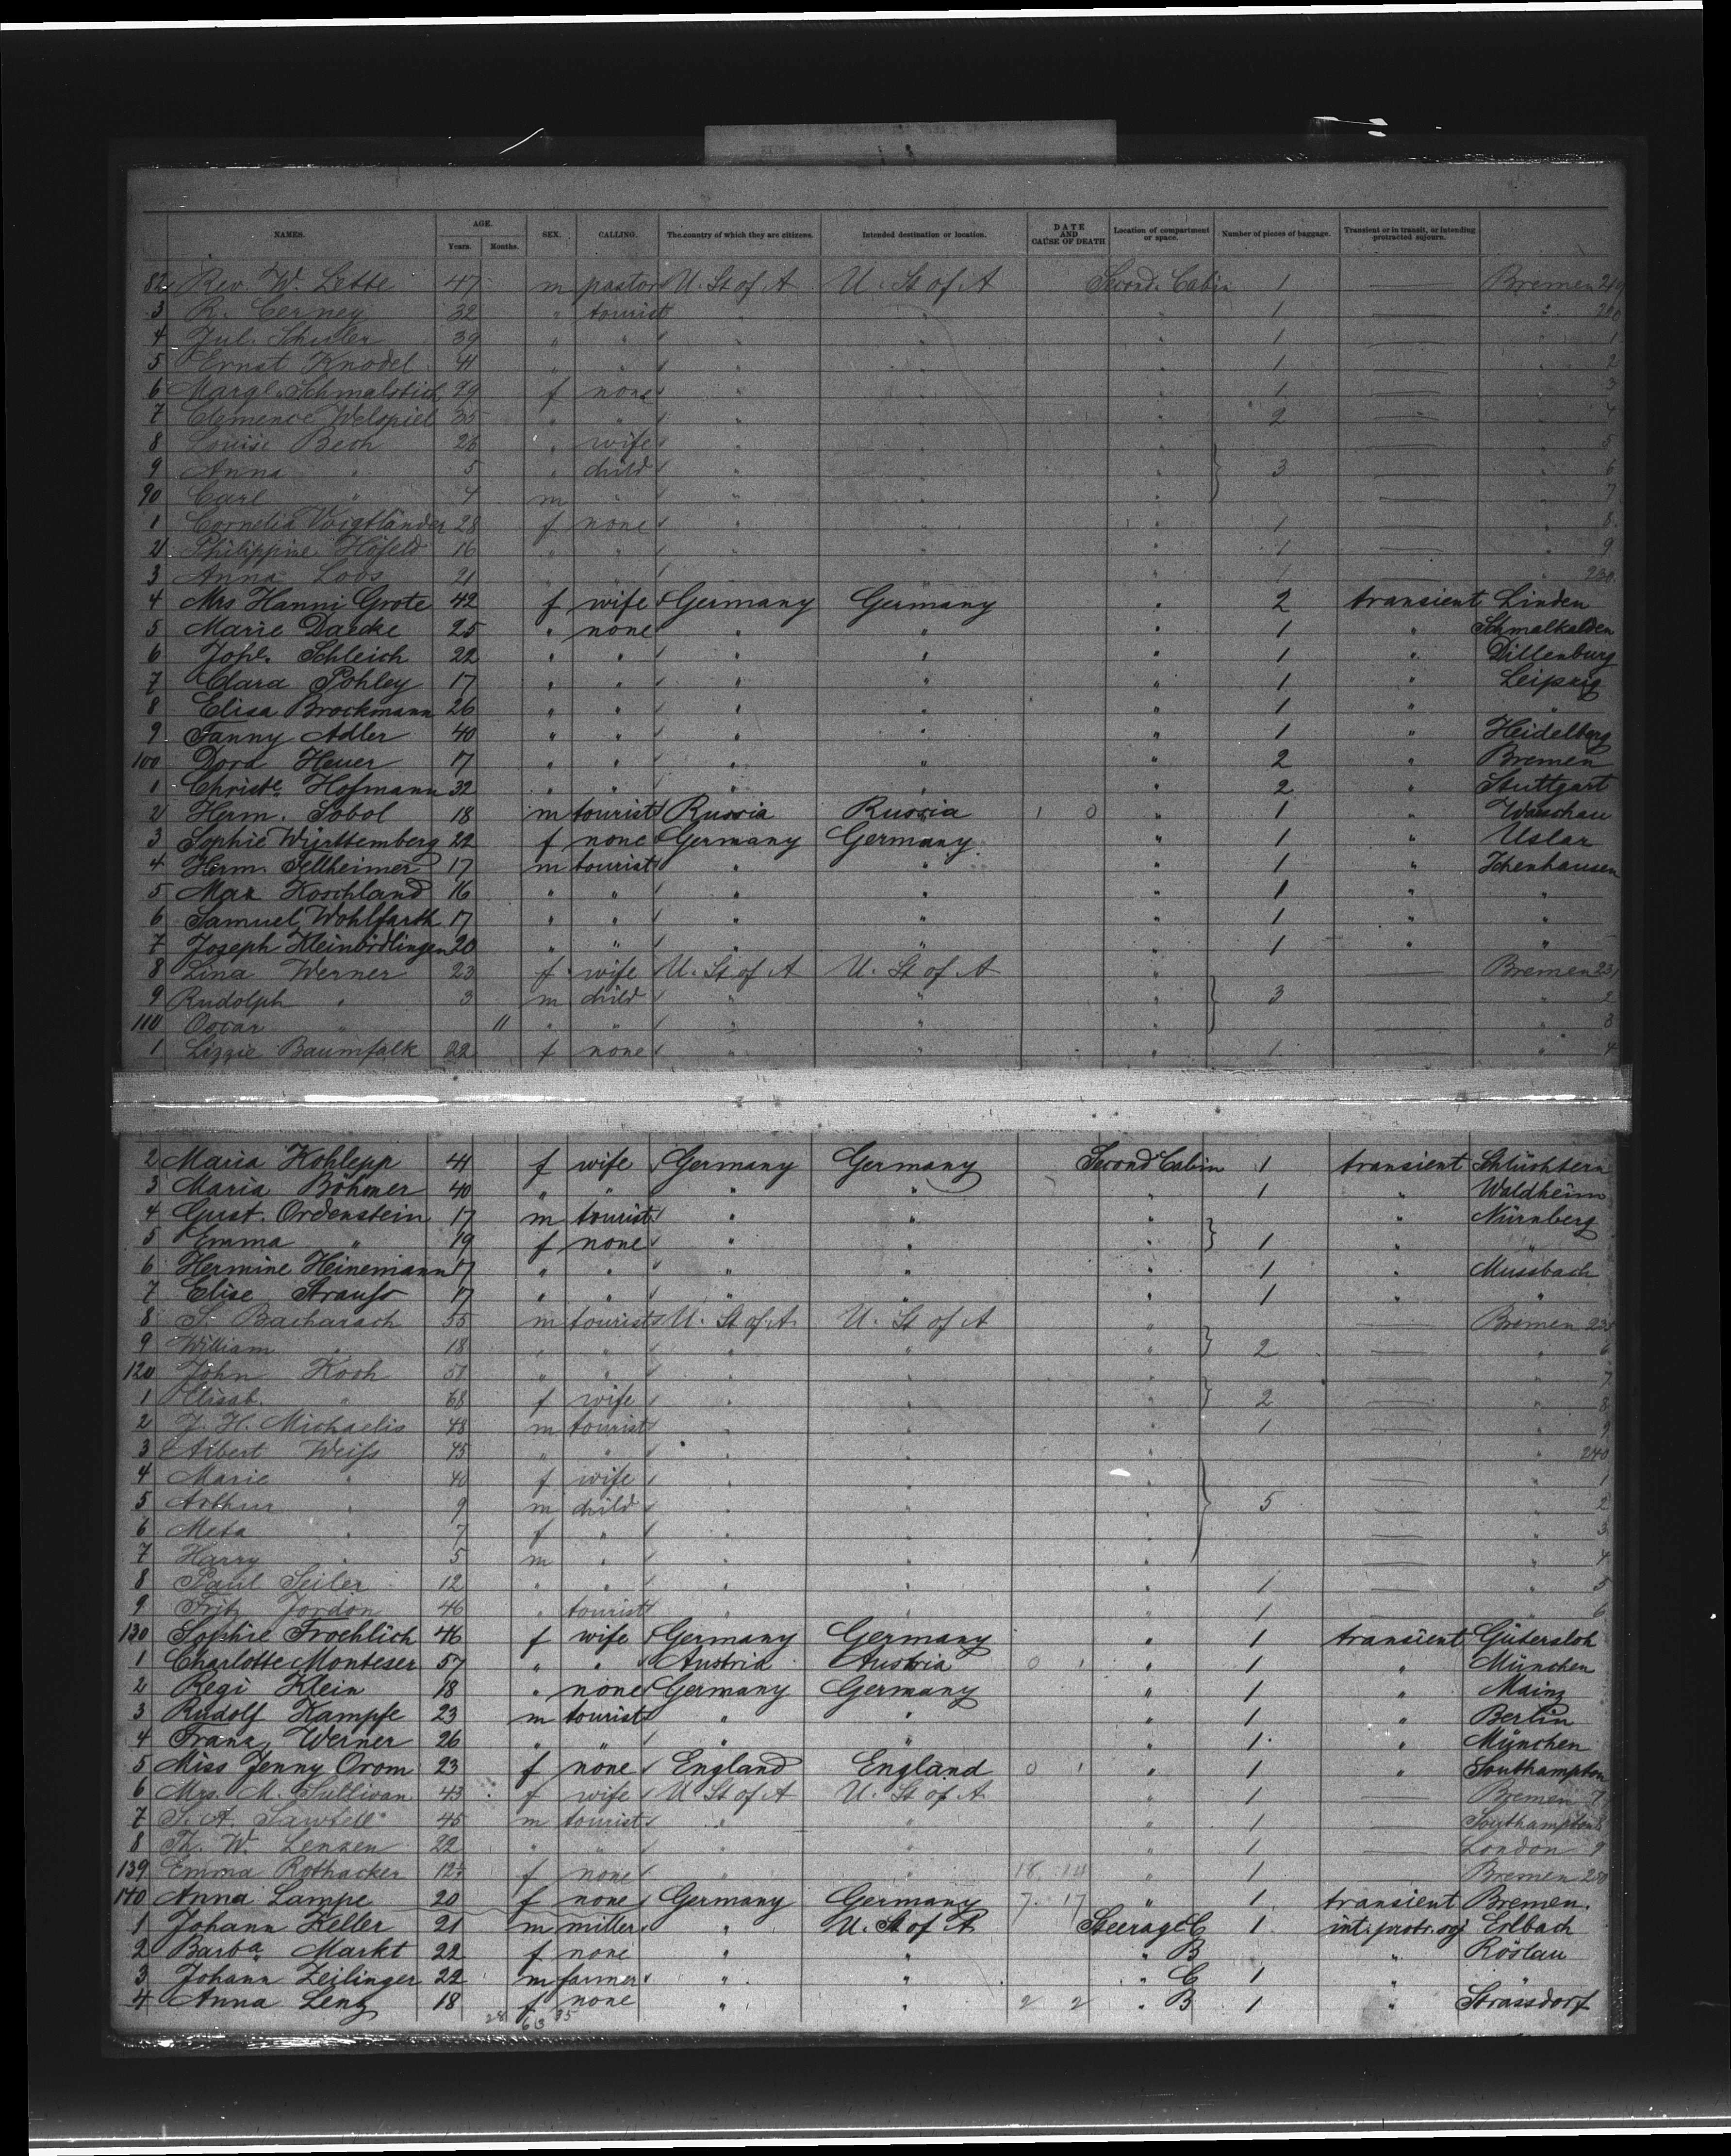 NAMES. AGE. Years. Months. SEX. CALLING. The country of which they are citizens. Intended destination or location. DATE AND CAUSE OF DEATH Location of compartment or space. Number of pieces of baggage. Transient or in transit, or intending protracted sojourn.
82 Rev. W. Lette 47 m pastor U. St of A U. St of A Second Cabin 1 — Bremen 219
3 R. Cerney 32 " tourist " " " 1 — " 220
4 Jul. Schuler 39 " " " " " 1 — " 1
5 Ernst Knodel 41 " " " " " 1 — " 2
6 Schmalstich 29 f none " " " 1 — " 3
7 Clemence Welspiel 35 " " " " " 2 — " 4
8 Louise Bech 26 " wife " " " — " 5
9 Anna " 5 " child " " " 3 — " 6
90 Carl " 4 m " " " " — " 7
1 Cornelia Voigtländer 28 f none " " " 1 — " 8
2 Philippine Höfeld 16 " " " " " 1 — " 9
3 Anna Loos 21 " " " " " 1 — " 230
4 Mrs Hanni Grote 42 f wife Germany Germany " 2 transient Linden
5 Marie Daecke 25 " none " " " 1 " Schmalkalden
6 Schleich 22 " " " " " 1 " Dillenburg
7 Clara Pohley 17 " " " " " 1 " Leipzig
8 Elisa Brockmann 26 " " " " " 1 " "
9 Fanny Adler 40 " " " " " 1 " Heidelberg
100 Dora Heuer 17 " " " " " 2 " Bremen
1 Christe Hofmann 32 " " " " " 2 " Stuttgart
2 Herm. Sobol 18 m tourist Russia Russia 1 0 " 1 " Warschau
3 Sophie Württemberg 22 f none Germany Germany " 1 " Uslar
4 Herm. Sellheimer 17 m tourist " " " 1 " Ichenhausen
5 Max Koschland 16 " " " " " 1 " "
6 Samuel Wohlfarth 17 " " " " " 1 " "
7 Joseph Kleinördlingen 20 " " " " " 1 " "
8 Lina Werner 23 f wife U. St of A U. St of A " — Bremen 231
9 Rudolph " 3 m child " " " 3 — " 2
110 Oscar " 11 " " " " " — " 3
1 Lizzie Baumfalk 22 f none " " " 1 — " 4
2 Maria Kohlepp 41 f wife Germany Germany Second Cabin 1 transient Schlüchtern
3 Maria Böhmer 40 " " " " " 1 " Waldheim
4 Gust. Ordenstein 17 m tourist " " " " Nürnberg
5 Emma " 19 f none " " " 1 " "
6 Hermine Heinemann 17 " " " " " 1 " Mussbach
7 Elise Strauss 17 " " " " " 1 " "
8 S. Bacharach 55 m tourist U. St of A. U. St of A " — Bremen 235
9 William " 18 " " " " " 2 — " 6
120 John Koch " " " " " — " 7
1 Elisab. " 68 f wife " " " 2 — " 8
2 J. H. Michaelis 48 m tourist " " " 1 — " 9
3 Albert Weiss 45 " " " " " — " 240
4 Marie " 40 f wife " " " — " 1
5 Arthur " 9 m child " " " 5 — " 2
6 Meta " 7 f " " " " — " 3
7 Harry " 5 m " " " " — " 4
8 Paul Seiler 12 " " " " " 1 — " 5
9 Fritz Jordon 46 " tourist " " " 1 — " 6
130 Sophie Froehlich 46 f wife Germany Germany " 1 transient Gütersloh
1 Charlotte Monteser 57 " " Austria Austria 0 1 " 1 " München
2 Regi Klein 18 " none Germany Germany " 1 " Mainz
3 Rudolf Kampfe 23 m tourist " " " 1 " Berlin
4 Franz Werner 26 " " " " " 1 " München
5 Miss Jenny Orom 23 f none England England 0 1 " 1 " Southampton
6 Mrs. M. Sullivan 43 f wife U St of A U. St of A " 1 — Bremen 7
7 S. A. Sawtell 45 m tourist " " " 1 — Southampton 8
8 Th. W. Lenzen 22 " " " " " 1 — London 9
139 Emma Rothacker f none " " 18 14 " 1 — Bremen 250
140 Anna Lampe 20 f none Germany Germany 7 17 " 1 transient Bremen.
1 Johann Keller 21 m miller " U. St of A Steerage C 1 int. protr. soj Erlbach
2 Barba Markt 22 f none " " " B " Röslau
3 Johann Zeilinger 22 m farmer " " " C 1 "
4 Anna Lenz 18 f none " " 2 2 " B 1 " Strassdorf
28 63 35